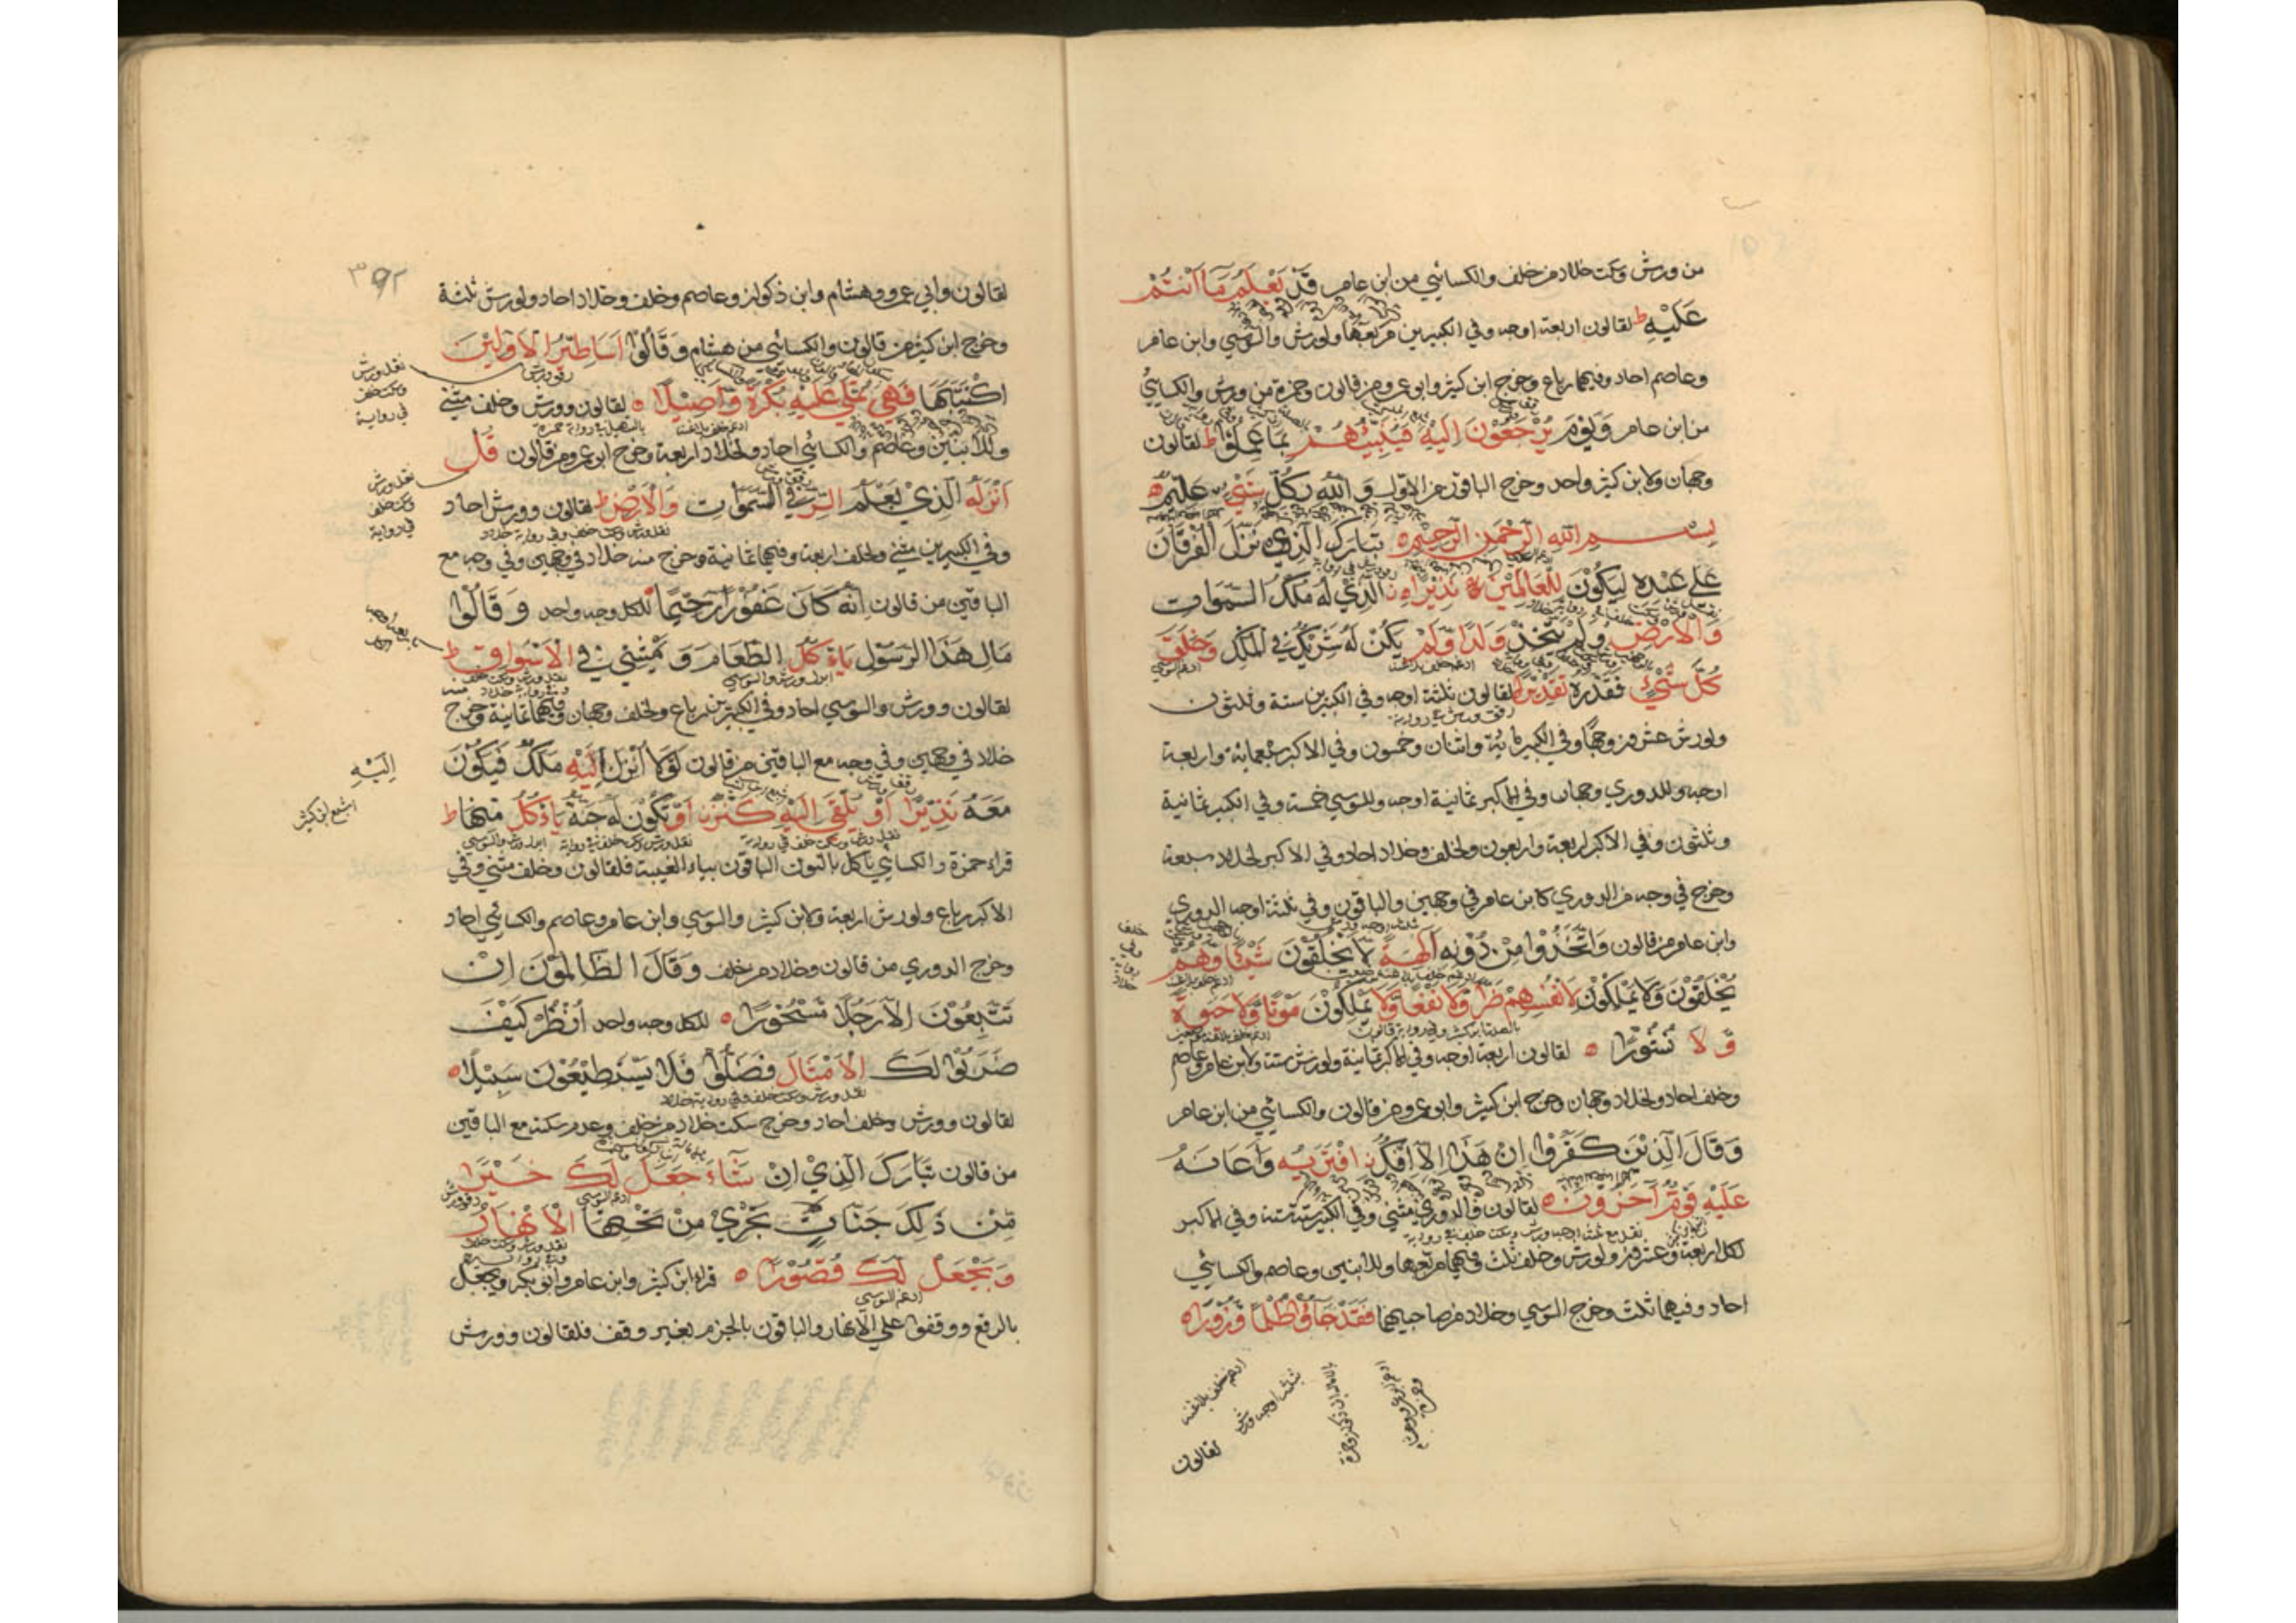 من ورش وسكت خلاد من خلف والكسائي من ابن عامر قَدْ يَعْلَمُ مَا اَنْتُمْ
عَلَيْهِ ط لقالون اربعة اوجه وفي الكبيرين مربعها ولورش والسوسي وابن عامر
وعاصم احاد وفيهما رباع وخرج ابن كثير وابو عمرو من قالون وحمزة من ورش والكسائي
من ابن عامر وَيَوْمَ يُرْجَعُوْنَ اِلَيْهِ فَيُنَبِّئُهُمْ بِمَا عَمِلُوْا ط لقالون
وجهان ولابن كثير واحد وخرج الباقون من الاول وَ اللّٰهُ بِكُلِّ شَيْءٍ عَلِيْمٌ ه
بِسْمِ اللّٰهِ الرَّحْمٰنِ الرَّحِيْمِ ه تَبَارَكَ الَّذِيْ نَزَّلَ الْفُرْقَانَ
عَلٰى عَبْدِهٖ لِيَكُوْنَ لِلْعَالَمِيْنَ نَذِيْرًا ه الَّذِيْ لَهٗ مُلْكُ السَّمٰوَاتِ
وَالْاَرْضِ وَلَمْ يَتَّخِذْ وَلَدًا وَّلَمْ يَكُنْ لَهٗ شَرِيْكٌ فِي الْمُلْكِ وَخَلَقَ
كُلَّ شَيْءٍ فَقَدَّرَهٗ تَقْدِيْرًا لقالون ثلثة اوجه وفي الكبيرين ستة وثلثون
ولورش عشرون وجها وفي الكبير مائة واثنان وخمسون وفي الاكبر سبعمائة واربعة
اوجه وللدوري وجهان وفي الاكبر ثمانية اوجه وللسوسي خمسة وفي الكبير ثمانية
وثلثون وفي الاكبر اربعة واربعون ولخلف وخلاد احاد وفي الاكبر لخلاد سبعة
وخرج في وجه من الدوري كابن عامر في وجهين والباقون وفي ثلثة اوجه الدوري
وابن عامر من قالون وَاتَّخَذُوْا مِنْ دُوْنِهٖ اٰلِهَةً لَّا يَخْلُقُوْنَ شَيْئًا وَّهُمْ
يُخْلَقُوْنَ وَلَا يَمْلِكُوْنَ لِاَنْفُسِهِمْ ضَرًّا وَّلَا نَفْعًا وَّلَا يَمْلِكُوْنَ مَوْتًا وَّلَا حَيٰوةً
وَّ لَا نُشُوْرًا ه لقالون اربعة اوجه وفي الاكبر ثمانية ولورش ستة ولابن عامر وعاصم
وخلف احاد ولخلاد وجهان وخرج ابن كثير وابو عمرو من قالون والكسائي من ابن عامر
وَقَالَ الَّذِيْنَ كَفَرُوْا اِنْ هٰذَا اِلَّا اِفْكُ نِ افْتَرٰىهُ وَاَعَانَهٗ
عَلَيْهِ قَوْمٌ اٰخَرُوْنَ ه لقالون والدوري مثنى وفي الكبير ستة ستة وفي الاكبر
لكل اربعة وعشرون ولورش وخلف ثلث وفيهما مربعها وللابنين وعاصم والكسائي
احاد وفيهما ثلث وخرج السوسي وخلاد من صاحبيهما فَقَدْ جَاؤُا ظُلْمًا وَّزُوْرًا ه
ادغم خلف بلا غنة
ثلثة اوجه ورش
لقالون
٣٩٢
لقالون وابي عمرو وهشام وابن ذكوان وعاصم وخلف وخلاد احاد ولورش ثلثة
وخرج ابن كثير من قالون والكسائي من هشام وَقَالُوْا اَسَاطِيْرُ الْاَوَّلِيْنَ
اكْتَتَبَهَا فَهِيَ تُمْلٰى عَلَيْهِ بُكْرَةً وَّاَصِيْلًا ه لقالون وورش وخلف مثنى
وللابنين وعاصم والكسائي احاد ولخلاد اربعة وخرج ابو عمرو من قالون قُلْ
اَنْزَلَهُ الَّذِيْ يَعْلَمُ السِّرَّ فِي السَّمٰوَاتِ وَالْاَرْضِ ط لقالون وورش احاد
وفي الكبيرين مثنى ولخلف اربعة وفيهما ثمانية وخرج منه خلاد في وجهين وفي وجه مع
الباقين من قالون اِنَّهٗ كَانَ غَفُوْرًا رَّحِيْمًا للكل وجه واحد وَ قَالُوْا
مَالِ هٰذَا الرَّسُوْلِ يَاْكُلُ الطَّعَامَ وَ يَمْشِيْ فِي الْاَسْوَاقِ ط
لقالون وورش والسوسي احاد وفي الكبيرين رباع ولخلف وجهان وفيهما ثمانية وخرج
خلاد في وجهين وفي وجه مع الباقين من قالون لَوْلَا اُنْزِلَ اِلَيْهِ مَلَكٌ فَيَكُوْنَ
مَعَهٗ نَذِيْرًا اَوْ يُلْقٰى اِلَيْهِ كَنْزٌ اَوْ تَكُوْنُ لَهٗ جَنَّةٌ يَّاْكُلُ مِنْهَا ط
قراء حمزة والكسائي ناكل بالنون الباقون بياء الغيبة فلقالون وخلف مثنى وفي
الاكبر رباع ولورش اربعة ولابن كثير والسوسي وابن عامر وعاصم والكسائي احاد
وخرج الدوري من قالون وخلاد من خلف وَقَالَ الظَّالِمُوْنَ اِنْ
تَتَّبِعُوْنَ اِلَّا رَجُلًا مَّسْحُوْرًا ه للكل وجه واحد اُنْظُرْ كَيْفَ
ضَرَبُوْا لَكَ الْاَمْثَالَ فَضَلُّوْا فَلَا يَسْتَطِيْعُوْنَ سَبِيْلًا ه
لقالون وورش وخلف احاد وخرج سكت خلاد من خلف وعدم سكته مع الباقين
من قالون تَبَارَكَ الَّذِيْ اِنْ شَاءَ جَعَلَ لَكَ خَيْرًا
مِّنْ ذٰلِكَ جَنَّاتٍ تَجْرِيْ مِنْ تَحْتِهَا الْاَنْهَارُ
وَيَجْعَلْ لَّكَ قُصُوْرًا ه قراء ابن كثير وابن عامر وابو بكر ويجعل
بالرفع ووقفوا على الانهار والباقون بالجزم بغير وقف فلقالون وورش
نقل ورش
وسكت خلف
في رواية
نقل ورش
وسكت خلف
في رواية
اِلَيْهِ
اشبع ابن كثير